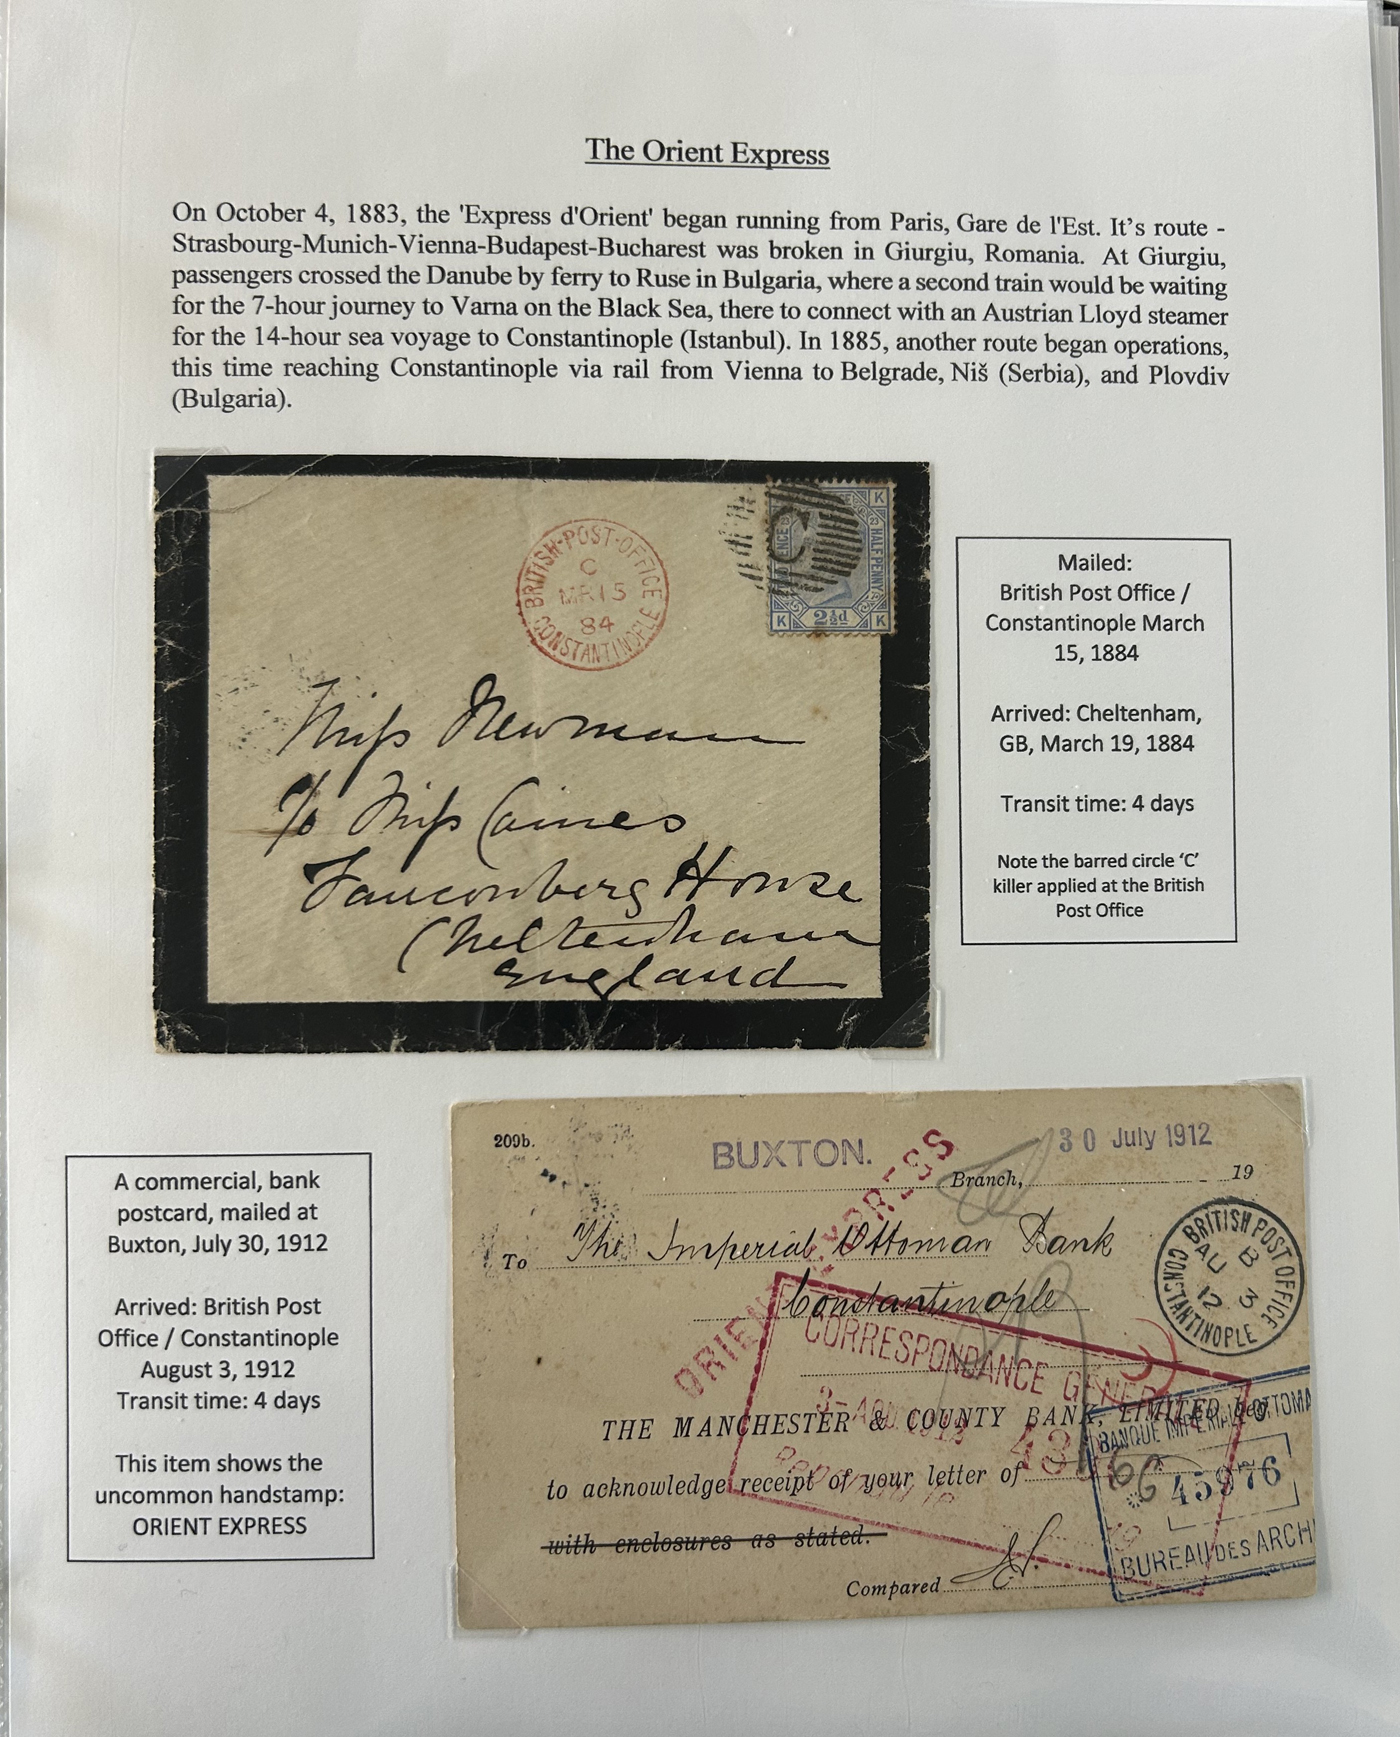 The Orient Express
On October 4, 1883, the 'Express d'Orient' began running from Paris, Gare de l'Est. It’s route -
Strasbourg-Munich-Vienna-Budapest-Bucharest was broken in Giurgiu, Romania. At Giurgiu,
passengers crossed the Danube by ferry to Ruse in Bulgaria, where a second train would be waiting
for the 7-hour journey to Varna on the Black Sea, there to connect with an Austrian Lloyd steamer
for the 14-hour sea voyage to Constantinople (Istanbul). In 1885, another route began operations,
this time reaching Constantinople via rail from Vienna to Belgrade, Niš (Serbia), and Plovdiv
(Bulgaria).
BRITISH-POST-OFFICE
C
MR15
84
CONSTANTINOPLE
C
K
23
23
HALF PENNY
K
2½d
K
Miss Newman
c/o Miss Caines
Fauconberg House
Cheltenham
England
Mailed:
British Post Office /
Constantinople March
15, 1884
Arrived: Cheltenham,
GB, March 19, 1884
Transit time: 4 days
Note the barred circle ‘C’
killer applied at the British
Post Office
A commercial, bank
postcard, mailed at
Buxton, July 30, 1912
Arrived: British Post
Office / Constantinople
August 3, 1912
Transit time: 4 days
This item shows the
uncommon handstamp:
ORIENT EXPRESS
209b.
BUXTON.
30 July 1912
Branch, 19
To The Imperial Ottoman Bank
Constantinople
ORIENT EXPRESS
BRITISH POST OFFICE
B
AU 3
12
CONSTANTINOPLE
CORRESPONDANCE
THE MANCHESTER & COUNTY BANK, LIMITED beg
to acknowledge receipt of your letter of
with enclosures as stated.
Compared
BANQUE IMPERIALE OTTOMA
45976
BUREAU DES ARCHI